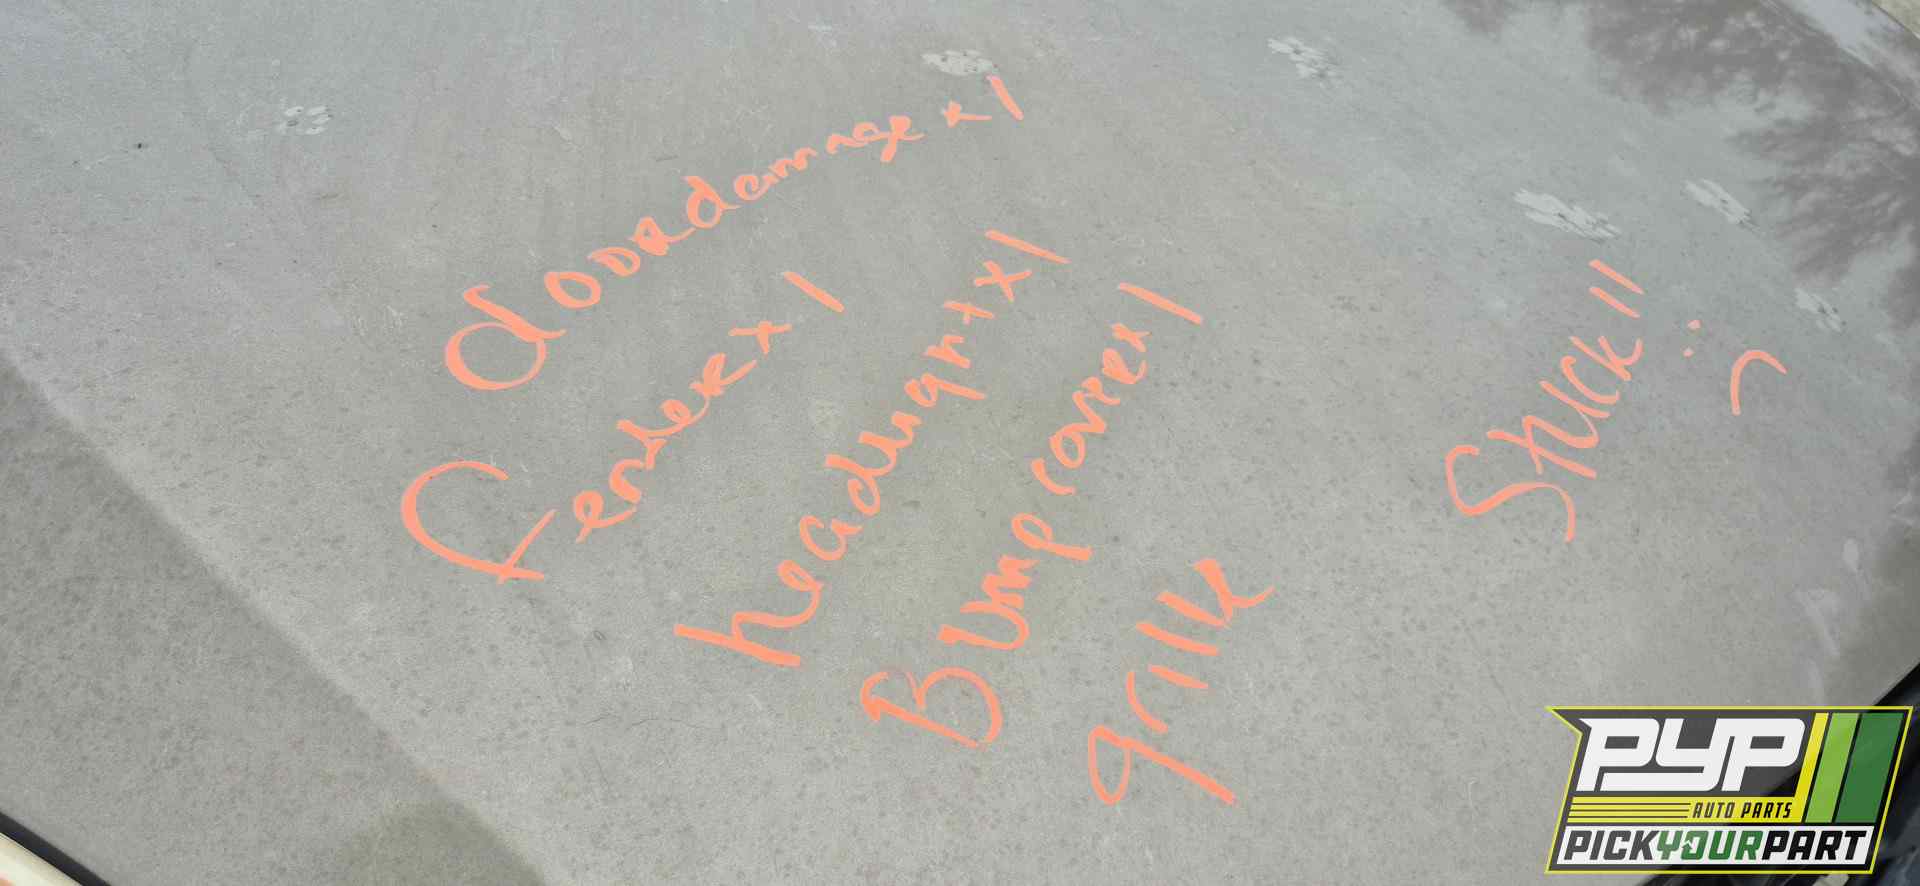 dOORdamage x 1
fendeR x 1
headlight x 1
Bump coveR x 1
grille
Stuck !! :(
PYP
AUTO PARTS
PICKYOURPART